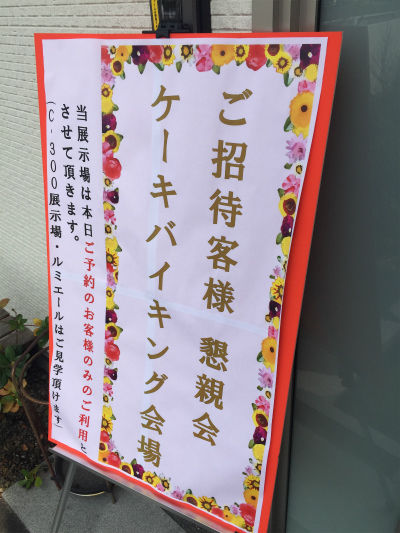 ご招待客様 懇親会
ケーキバイキング会場
当展示場は本日ご予約のお客様のみのご利用と
させて頂きます。
(C・300展示場・ルミエールはご見学頂けます)